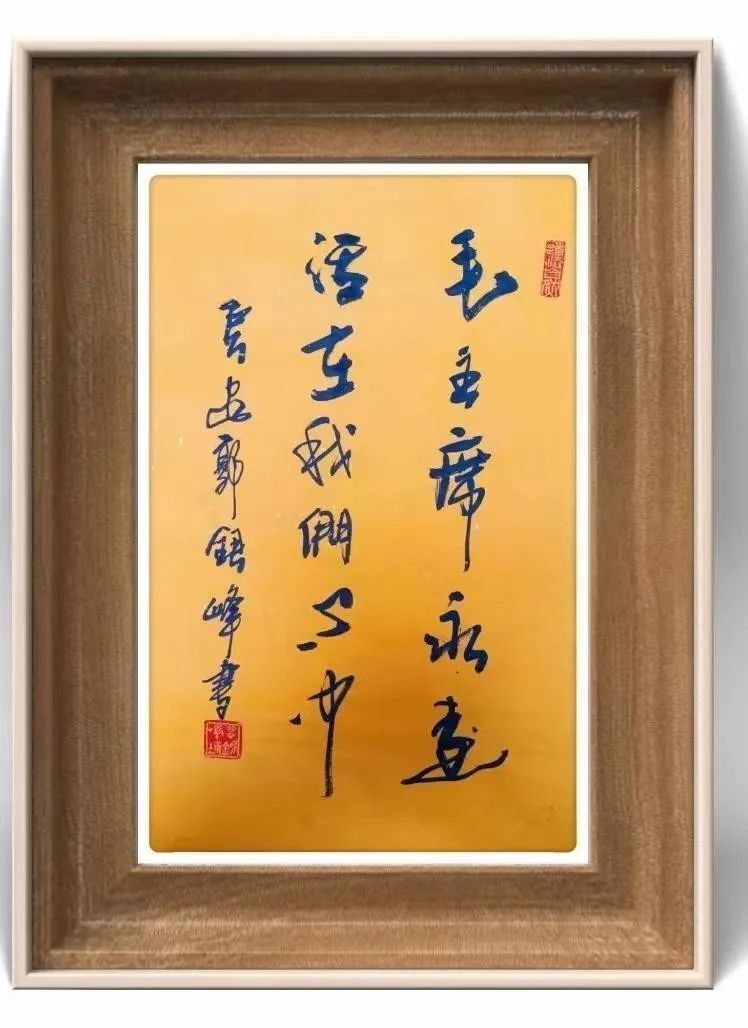 毛主席永遠
活在我們心中
郭峰書